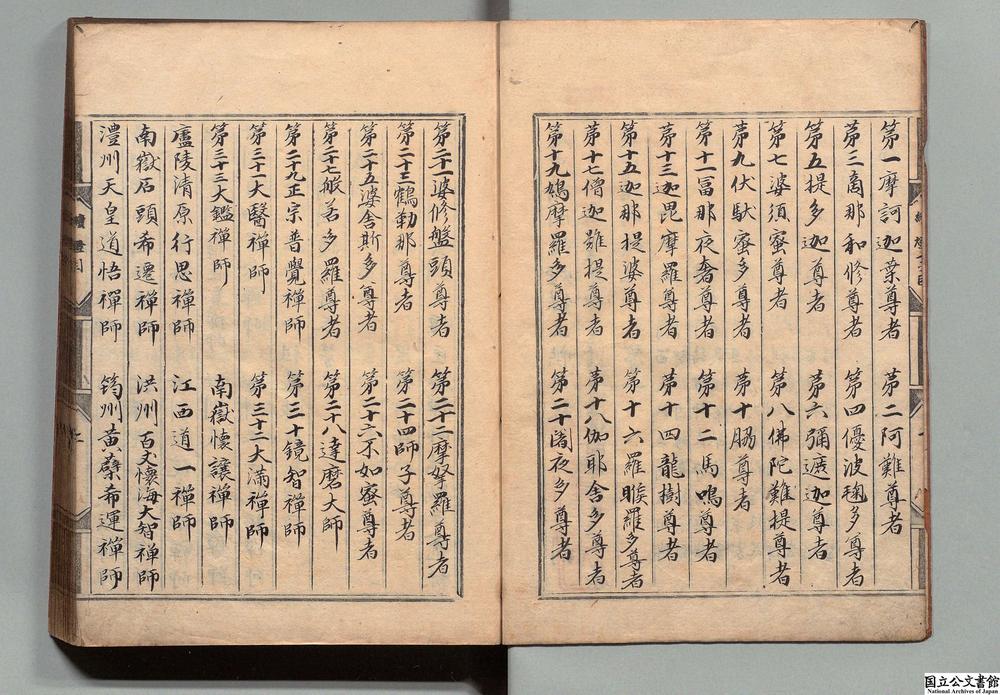 第一摩訶迦葉尊者　第二阿難尊者
第三商那和修尊者　第四優波毱多尊者
第五提多迦尊者　第六彌遮迦尊者
第七婆須蜜尊者　第八佛陀難提尊者
第九伏馱蜜多尊者　第十脇尊者
第十一冨那夜奢尊者　第十二馬鳴尊者
第十三迦毘摩羅尊者　第十四龍樹尊者
第十五迦那提婆尊者　第十六羅睺羅多尊者
第十七僧迦難提尊者　第十八伽耶舍多尊者
第十九鳩摩羅多尊者　第二十闍夜多尊者
第二十一婆修盤頭尊者　第二十二摩拏羅尊者
第二十三鶴勒那尊者　第二十四師子尊者
第二十五婆舍斯多尊者　第二十六不如蜜尊者
第二十七般若多羅尊者　第二十八達磨大師
第二十九正宗普覺禪師　第三十鏡智禪師
第三十一大醫禪師　第三十二大滿禪師
第三十三大鑑禪師　南嶽懷讓禪師
廬陵清原行思禪師　江西道一禪師
南嶽石頭希遷禪師　洪州百丈懷海大智禪師
澧州天皇道悟禪師　筠州黃蘗希運禪師
国立公文書館
National Archives of Japan